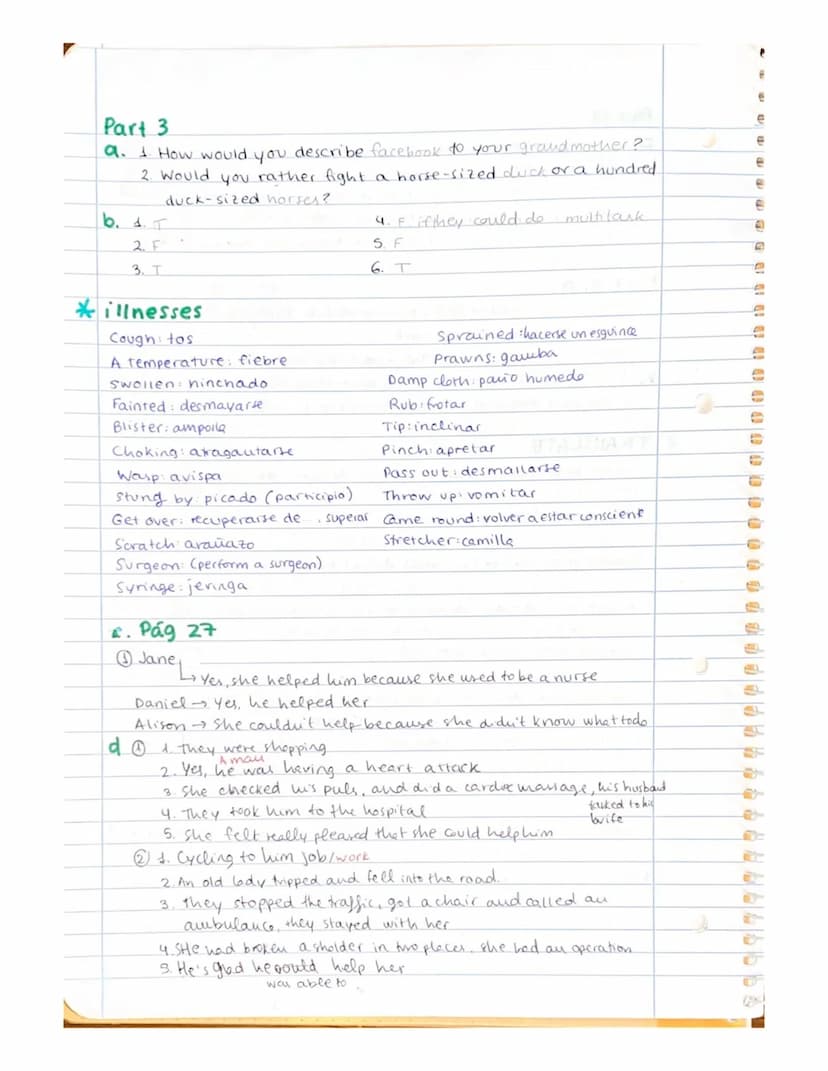 Part 3
a. 1 How would you describe facebook to your grandmother?
2. Would you rather fight a horse-sized duck or a hundred
duck-sized horses?
b. 1. T
2. F
3. T
4. F if they could do multitask
5. F
6. T
* illnesses
Cough: tos
A temperature: fiebre
Swollen: hinchado
Fainted: desmayarse
Blister: ampolla
Choking: atragantarse
Wasp: avispa
Stung by: picado (participio)
Get over: recuperarse de, superar
Scratch arañazo
Surgeon: (perform a surgeon)
Syringe: jeringa
Sprained: hacerse un esguince
Prawns: gamba
Damp cloth: paño humedo
Rub: frotar
Tip: inclinar
Pinch: apretar
Pass out: desmallarse
Throw up: vomitar
Came round: volver a estar conscient
Stretcher: camilla
c. Pág 27
① Jane
↳ Yes, she helped him because she used to be a nurse
Daniel → Yes, he helped her
Alison → She couldn't help because she didn't know what todo
d ① 1. They were shopping
A man
2. Yes, he was having a heart attack
3. She checked his puls, and did a cardiac massage, his husband
talked to his
wife
4. They took him to the hospital
5. She felt really pleased that she could help him
② 1. Cycling to him job/work
2. An old lady tripped and fell into the road.
3. They stopped the traffic, got a chair and called an
ambulance, they stayed with her
4. SHe had broken a sholder in two places, she had an operation
5. He's glad he could help her
was able to